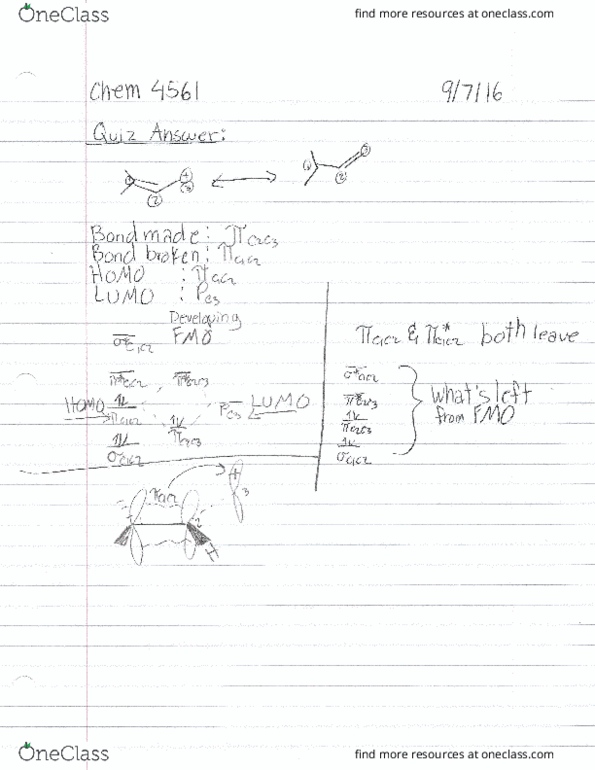 OneClass
find more resources at oneclass.com
Chem 4561
9/7/16
Quiz Answer:
(1) (2) (3) +
(1) (2) (3)
Bond made: πC2C3
Bond broken: πC1C2
HOMO : πC1C2
LUMO : PC3
Developing
FMO
σ*C1C2
π*C1C2, π*C2C3
HOMO
πC1C2
PC3 LUMO
πC2C3
σC1C2
πC1C2 & π*C1C2 both leave
σ*C1C2
π*C2C3
πC2C3
σC1C2
What's left
from FMO
πC1C2
+
3
1
2
H
OneClass
find more resources at oneclass.com